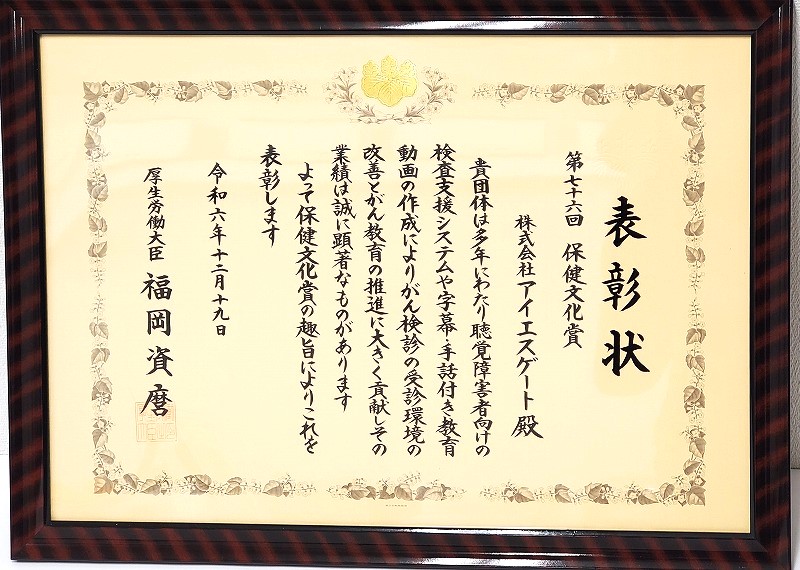 表彰状
第七十六回 保健文化賞
株式会社アイエスゲート殿
貴団体は多年にわたり聴覚障害者向けの
検査支援システムや字幕・手話付き教育
動画の作成によりがん検診の受診環境の
改善とがん教育の推進に大きく貢献しその
業績は誠に顕著なものがあります
よって保健文化賞の趣旨によりこれを
表彰します
令和六年十二月十九日
厚生労働大臣 福岡資麿